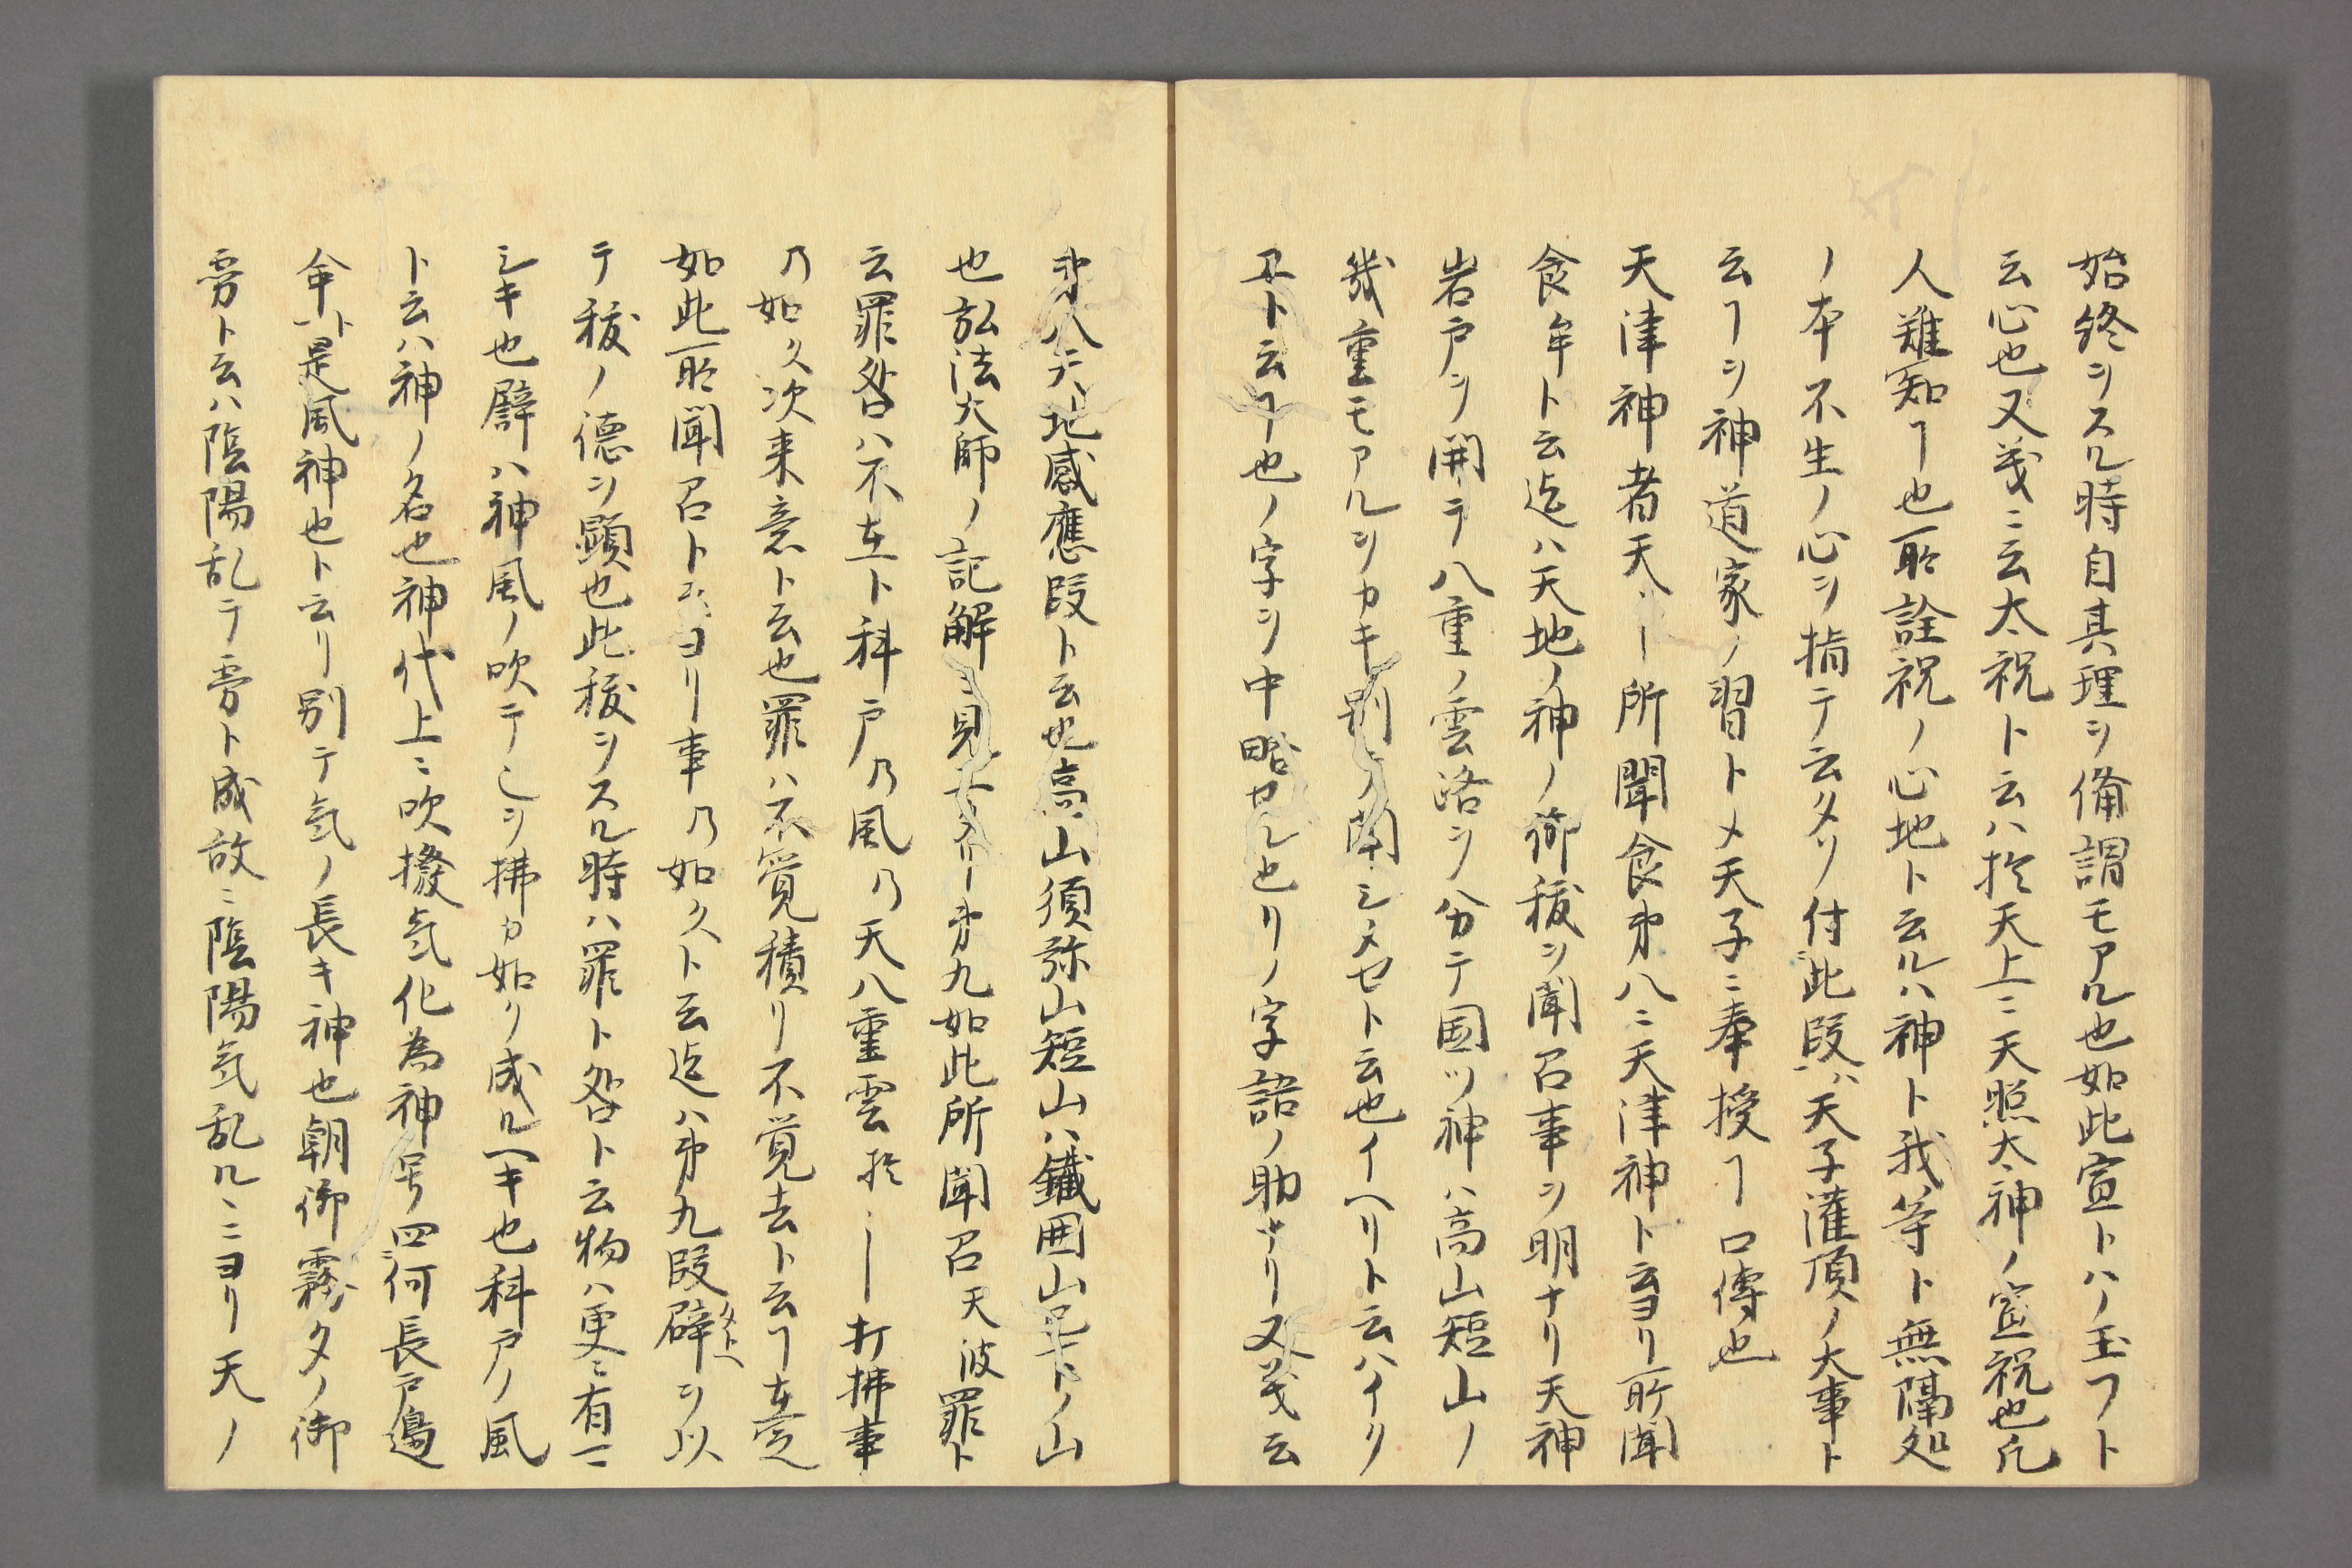 始終ヲスル時自其理ヲ備謂モアル也如此宣トハノ玉フト
云心也又義ニ云太祝ト云ハ於天上ニ天照太神ノ宣祝也凡
人難知ヿ也所詮祝ノ心地ト云ルハ神ト我等ト無隔処
ノ本不生ノ心ヲ指テ云タリ付此段ハ天子灌頂ノ大事ト
云ヿヲ神道家ノ習トメ天子ニ奉授ヿ口傳也
天津神者天ハ｜所聞食第八ニ天津神ト云ヨリ所聞
食牟ト云迄ハ天地ノ神ノ御秡ヲ聞召事ヲ明ナリ天神
岩戸ヲ開テ八重ノ雲路ヲ分テ国ツ神ハ高山短山ノ
幾重モアルヲカキ別ノ聞シメセト云也イヘリト云ハイリ
ヌト云ヿ也ノ字ヲ中略セル也リノ字語ノ助ナリ又義云
第八天地感應段ト云也高山須弥山短山ハ鐵囲山已下ノ山
也弘法大師ノ記解ニ見ヘタリ第九如此所聞召天波罪ト
云罪咎ハ不在ト科戸乃風乃天八重雲於｜打拂事
乃如ク次来意ト云也罪ハ不覚積リ不覚去ト云ヿ在之
如此所聞召トヨリ事乃如クト云迄ハ第九段辟ヲ以
テ秡ノ德ヲ顕也此秡ヲスル時ハ罪ト咎ト云物ハ更ニ有
シキ也辟ハ神風ノ吹テヲ拂カ如リ成ルヘキ也科戸ノ風
ト云ハ神ノ名也神代上ニ吹撥気化為神号四何長戸邊
命ト是風神也ト云リ別テ気ノ長キ神也朝御霧夕ノ御
雰ト云ハ陰陽乱テ雰ト成故ニ陰陽気乱ルニヨリ天ノ